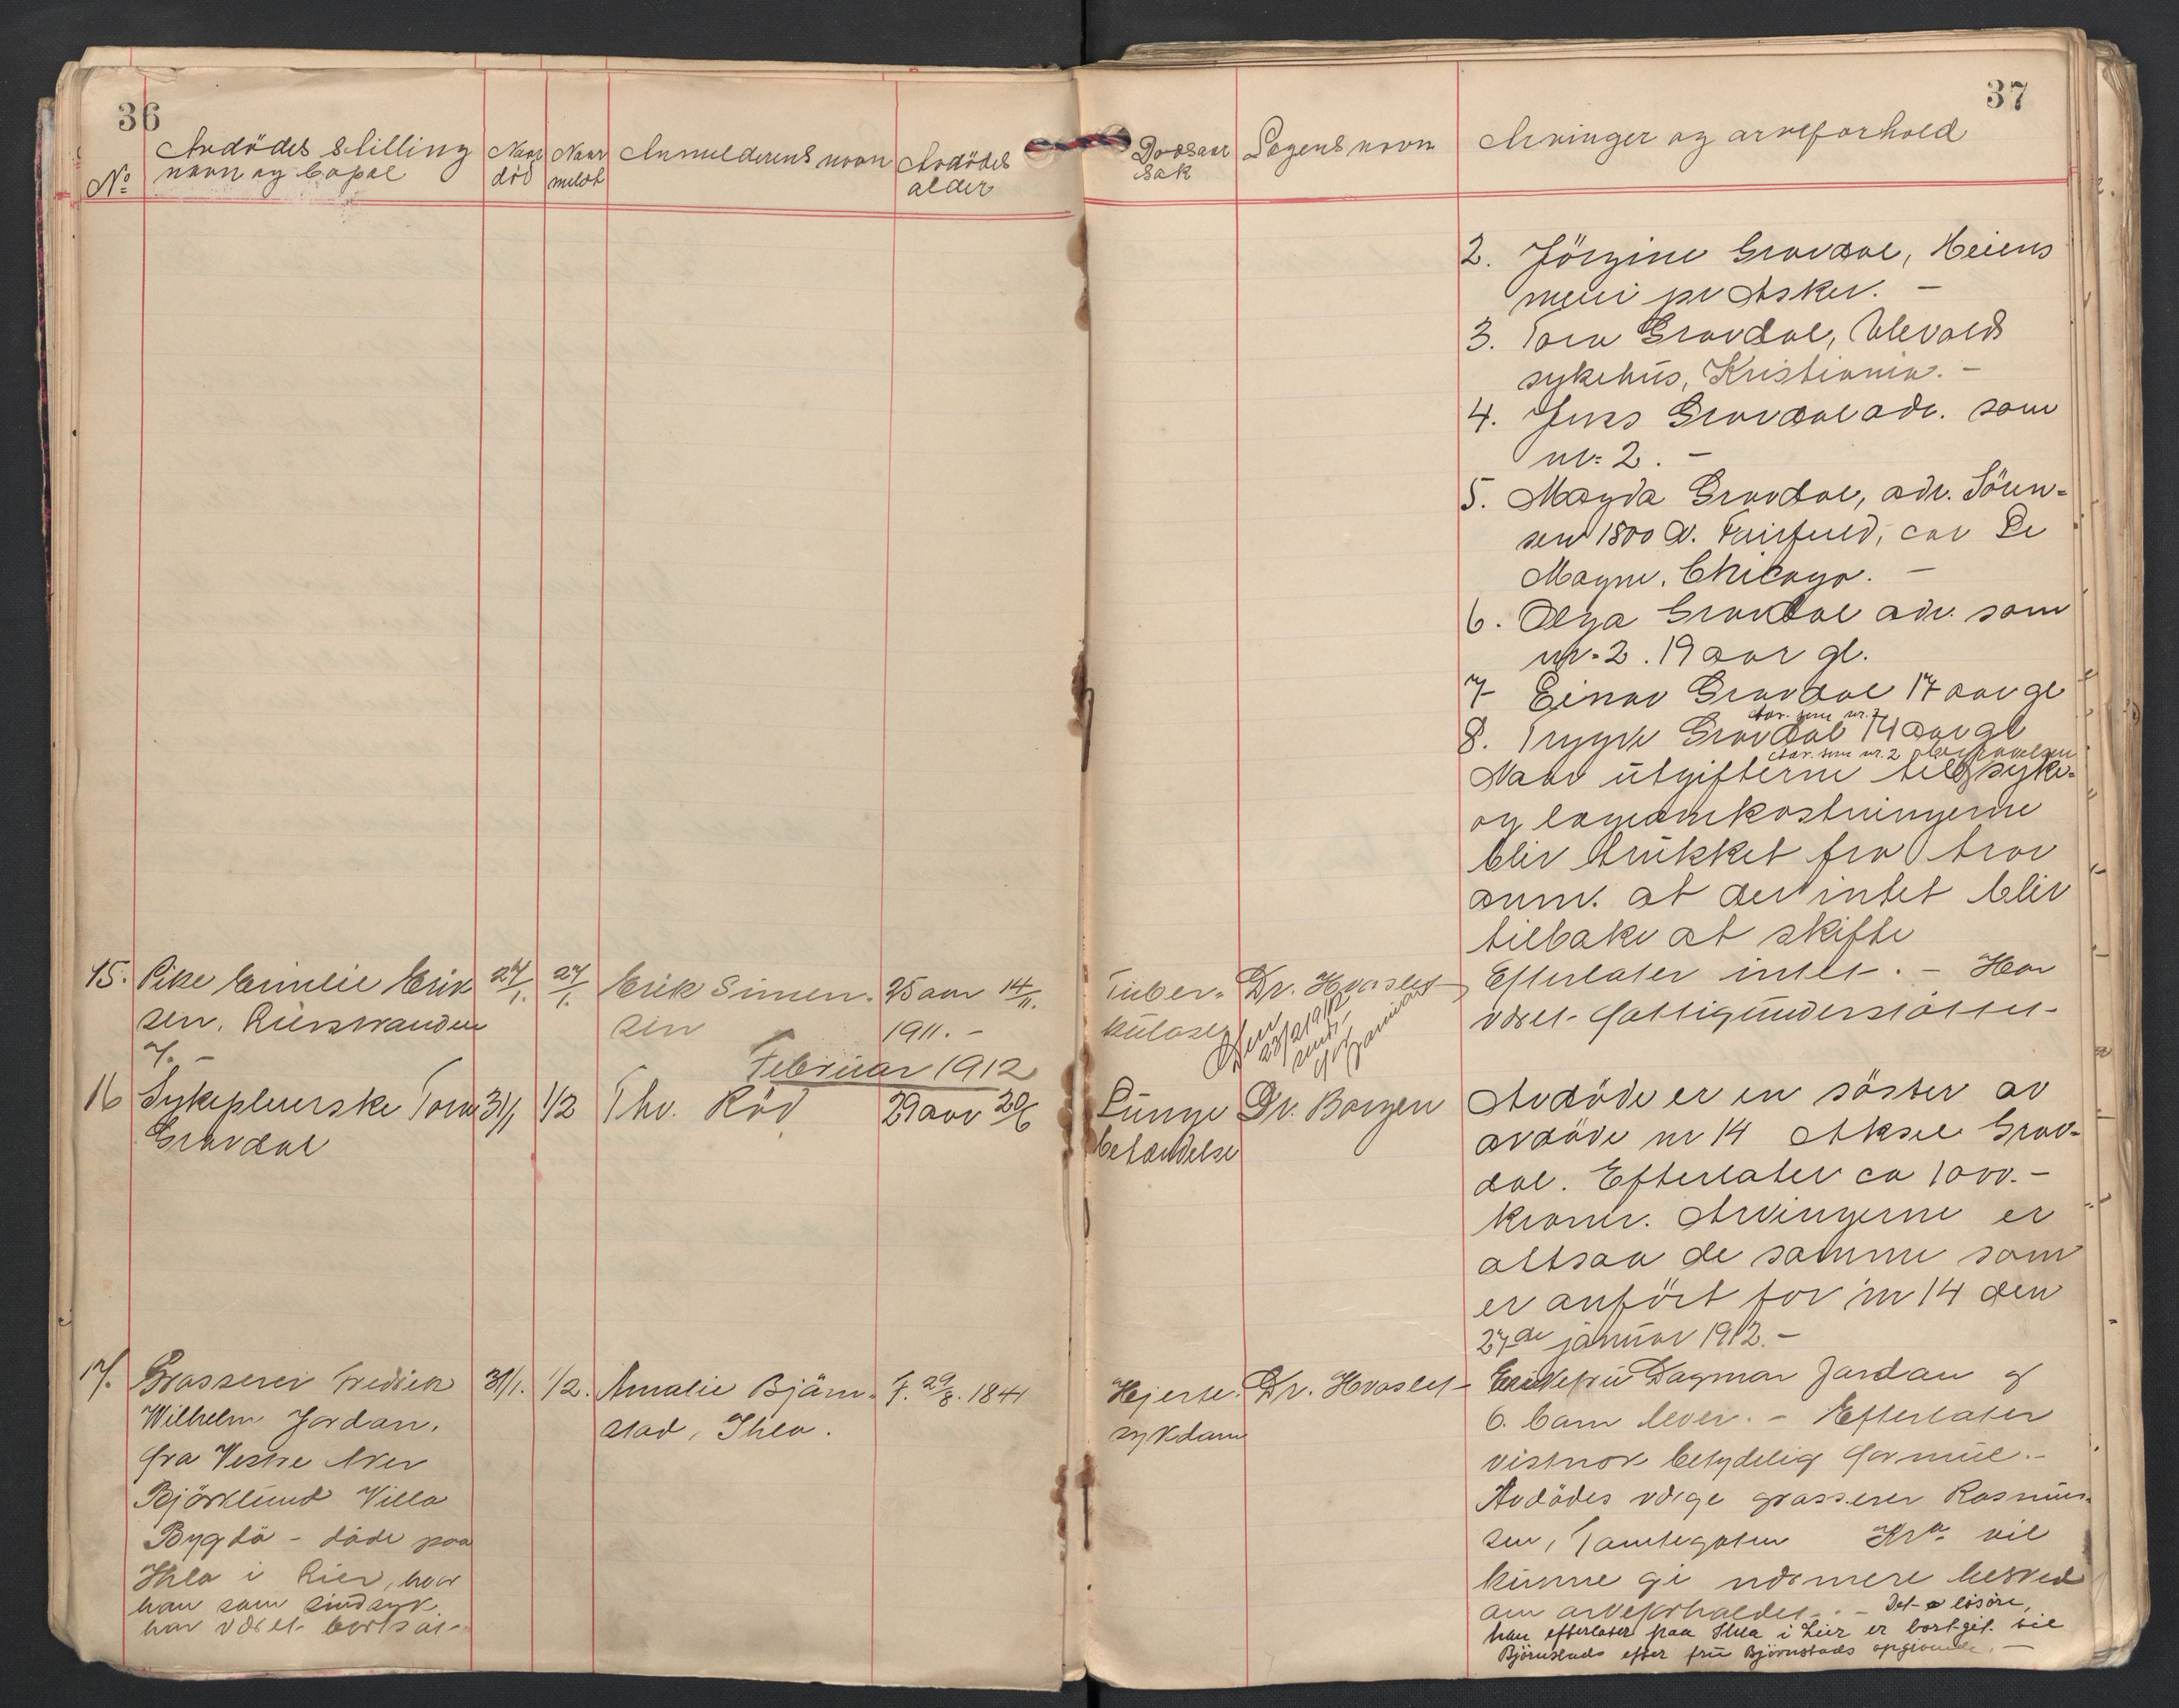 36
37
No
Avdödes stilling
navn og bopæl
Naar
död
Naar
meldt
Anmelderens navn
Avdödes
alder
Dödsaar
sak
Lægens navn
Arvinger og arveforhold
2. Jörgine Gravdal, Heiens
meieri pr Asker. —
3. Tora Gravdal, Ulevolds
sykehus, Kristiania. —
4. Jens Gravdal adr. som
nr. 2. —
5. Magda Gravdal, adr. Sören-
sen 1800 N. Fairfield, cor De
Magne, Chicago. —
6. Olga Gravdal adr. som
nr. 2. 19 aar gl.
7 Einar Gravdal 17 aar gl
Adr. som nr. 2
8. Trygve Gravdal 14 aar gl
Adr. som nr. 2 begravelsen
Naar utgifterne til syke-
og lægeomkostningerne
blir trukket fra tror
anm. at der intet blir
tilbake at skifte
15. Pike Emilie Erik
sen, Lierstranden
7. —
24/1.
27/1.
Erik Simen-
sen
25 aar 14/11.
1911. —
Tuber-
kulose
Dr. Hvoslef
23/2 1912
Efterlater intet. — Har
været fattigunderstöttet —
Februar 1912
16 Sykepleierske Tora
Gravdal
31/1
1/2
Thv. Röd
29 aar 20/6
Lunge
betændelse
Dr. Borgen
Avdöde er en söster av
avdöde nr 14 Aksel Grav-
dal. Efterlater ca 1000.—
kroner. Arvingerne er
altsaa de samme som
er anført for nr 14 den
27de januar 1912. —
17. Grosserer Fredrik
Wilhelm Jordan,
fra Vestre Aker
Björklund Villa
Bygdö — döde paa
Ihla i Lier, hvor
han som sindsyk
har været bortsat —
31/1.
1/2.
Amalie Björn-
stad, Ihla.
f. 29/8. 1841
Hjerte-
sykdom
Dr. Hvoslef
Enkefru Dagmar Jordan og
6. barn lever. — Efterlater
vistnok betydelig formue. —
Avdödes værge grosserer Rasmus-
sen, Tomtegaten Kra. vil
kunne gi nærmere besked
om arveforholdet. — Det lösöre,
han efterlater paa Ihla i Lier er bortgit til
Björnstads efter fru Björnstads opgivende. —